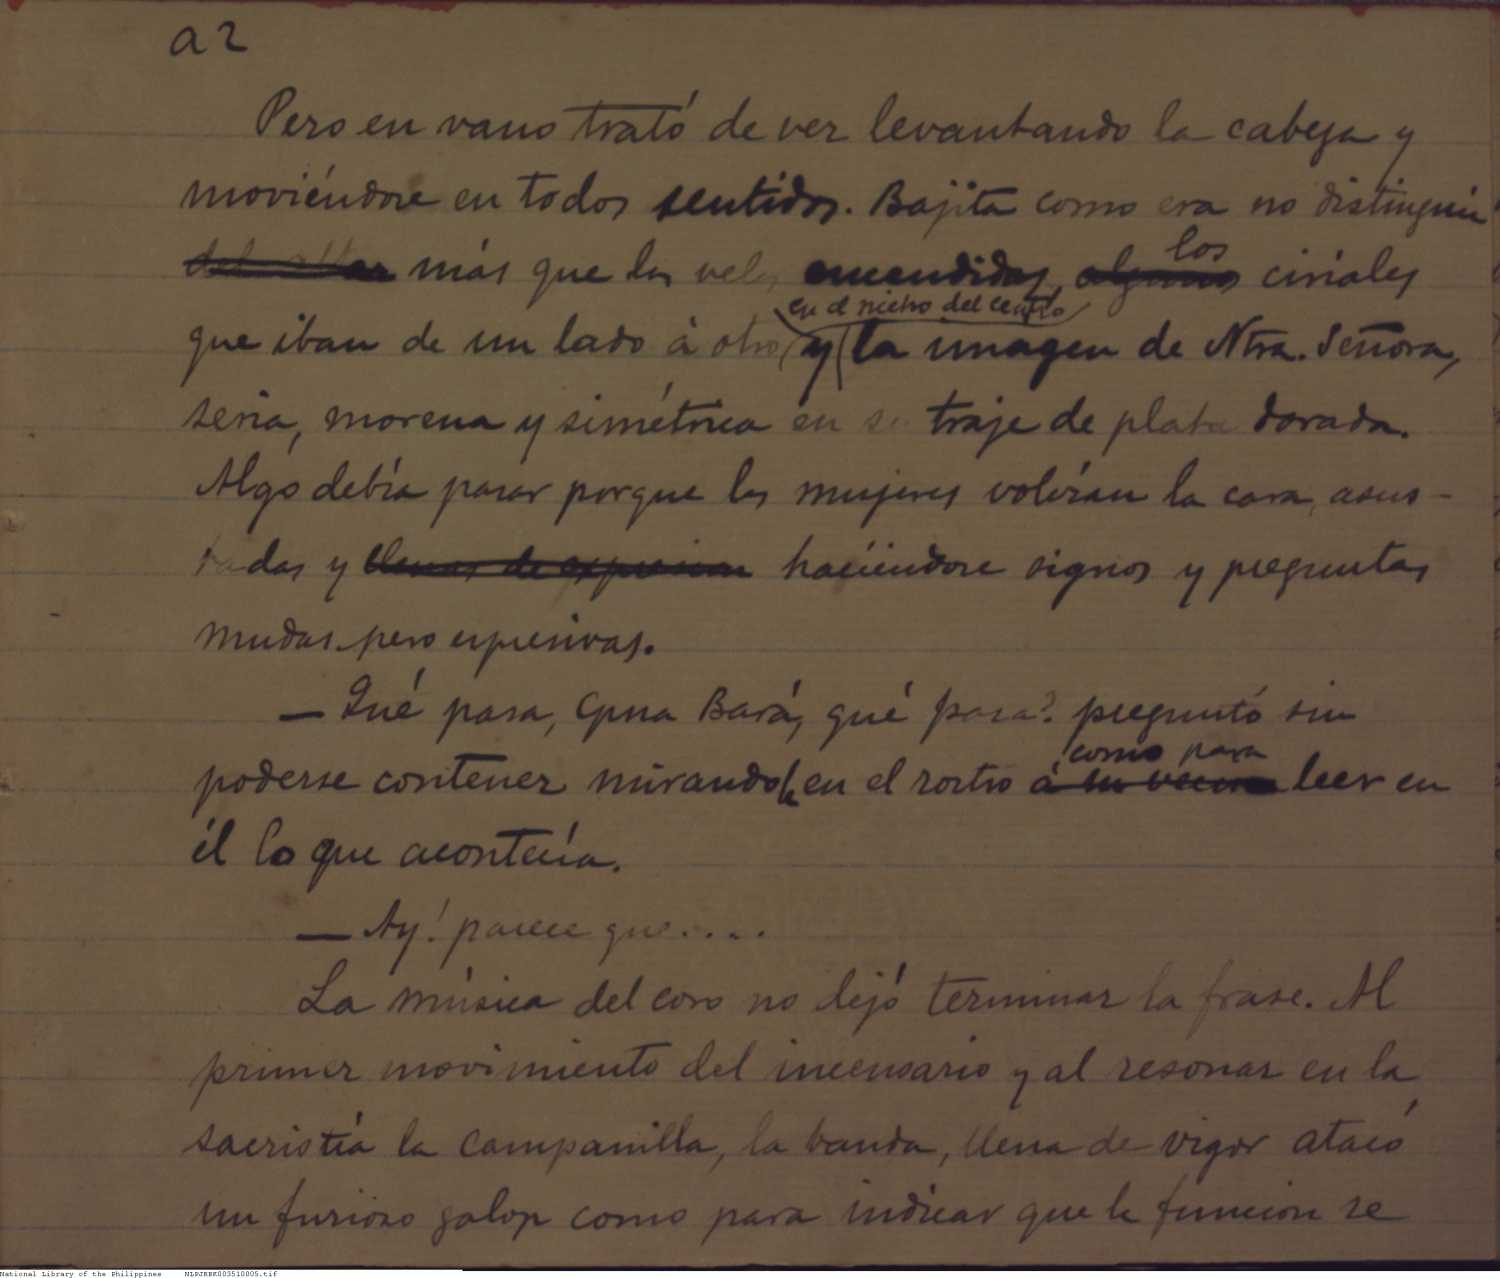 a2
Pero en vano trató de ver levantando la cabeza y
moviéndose en todos sentidos. Bajita como era no distinguía
del altar más que las velas encendidas, algunos los ciriales
en el nicho del centro
que iban de un lado á otro y la imagen de Ntra. Señora,
seria, morena y simétrica en su traje de plata dorada.
Algo debía pasar porque las mujeres volvían la cara, asus-
tadas y llenas de expresion haciéndose signos y preguntas
mudas pero espresivas.
— Qué pasa, Cpna Bará, qué pasa? preguntó sin
como para
poderse contener mirandola en el rostro á su vecina leer en
él lo que acontecía.
— Ay! parece que....
La música del coro no dejó terminar la frase. Al
primer movimiento del incensario y al resonar en la
sacristía la campanilla, la banda, llena de vigor atacó
un furioso galop como para indicar que la funcion se
National Library of the Philippines NLPJRBK003510005.tif